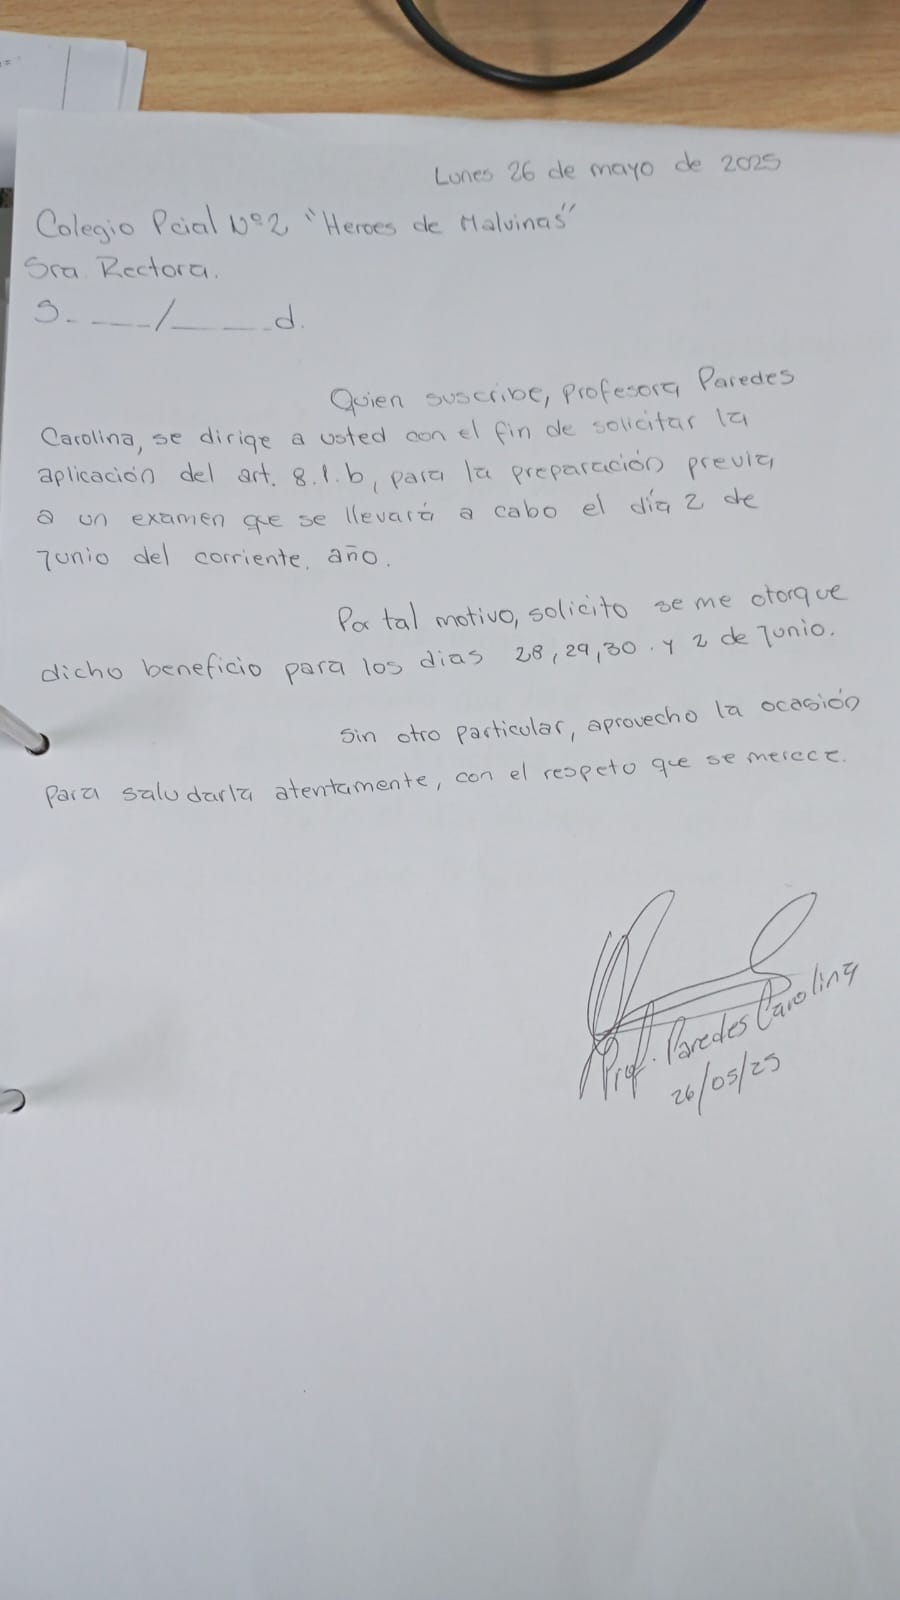 Lunes 26 de mayo de 2025
Colegio Pcial Nº2 "Heroes de Malvinas"
Sra. Rectora.
S.___/____d.
Quien suscribe, profesora Paredes
Carolina, se dirige a usted con el fin de solicitar la
aplicación del art. 8.1.b, para la preparación previa
a un examen que se llevará a cabo el día 2 de
Junio del corriente, año.
Por tal motivo, solicito se me otorgue
dicho beneficio para los dias 28, 29, 30. y 2 de Junio.
Sin otro particular, aprovecho la ocasión
para saludarla atentamente, con el respeto que se merece.
Prof. Paredes Carolina
26/05/25